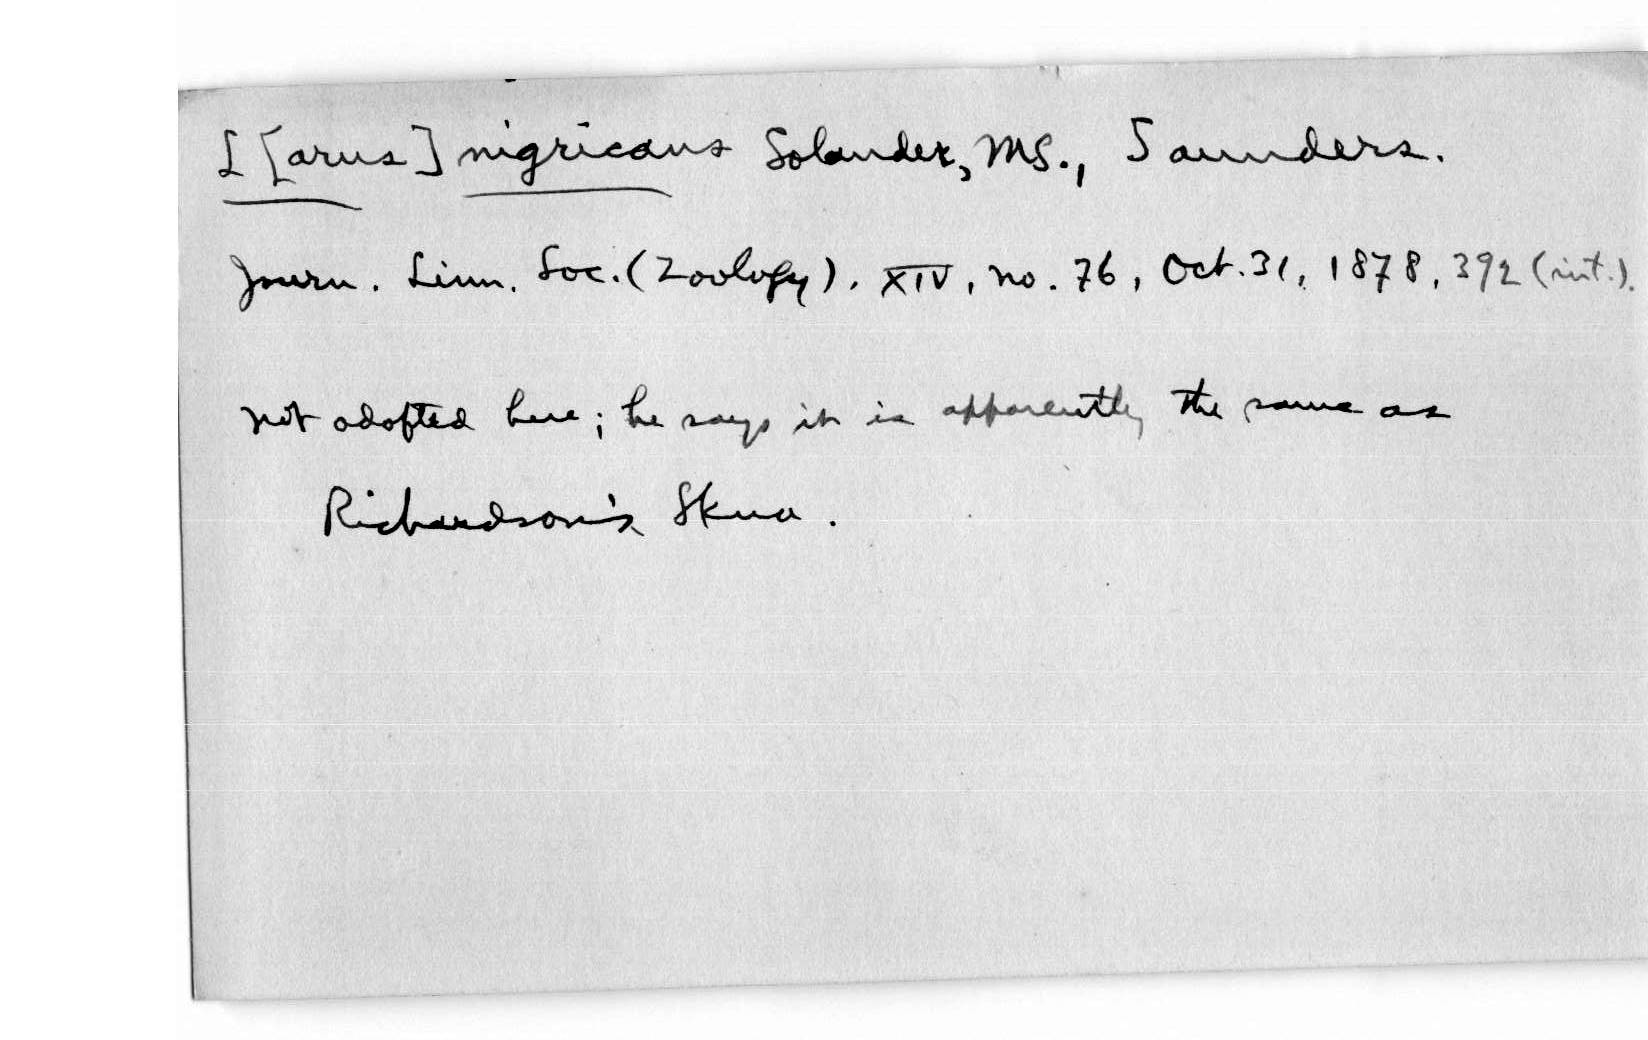 L[arus] nigricans Solander, MS., Saunders.
Journ. Linn. Soc. (Zoology). XIV, no. 76, Oct. 31, 1878, 392 (int.).
not adopted here; he says it is apparently the same as
Richardson's Skua.